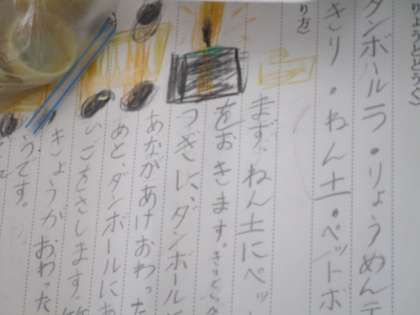 りょうとどうぐ
ダンボール・りょうめんテ
きり・ねん土・ペットボ
り方)
まず、ねん土にペッ
をおきます。
つぎに、ダンボール
あながあけおわった
めと、ダンボールにあ
いごをさします。
きょうがおわった
うです。